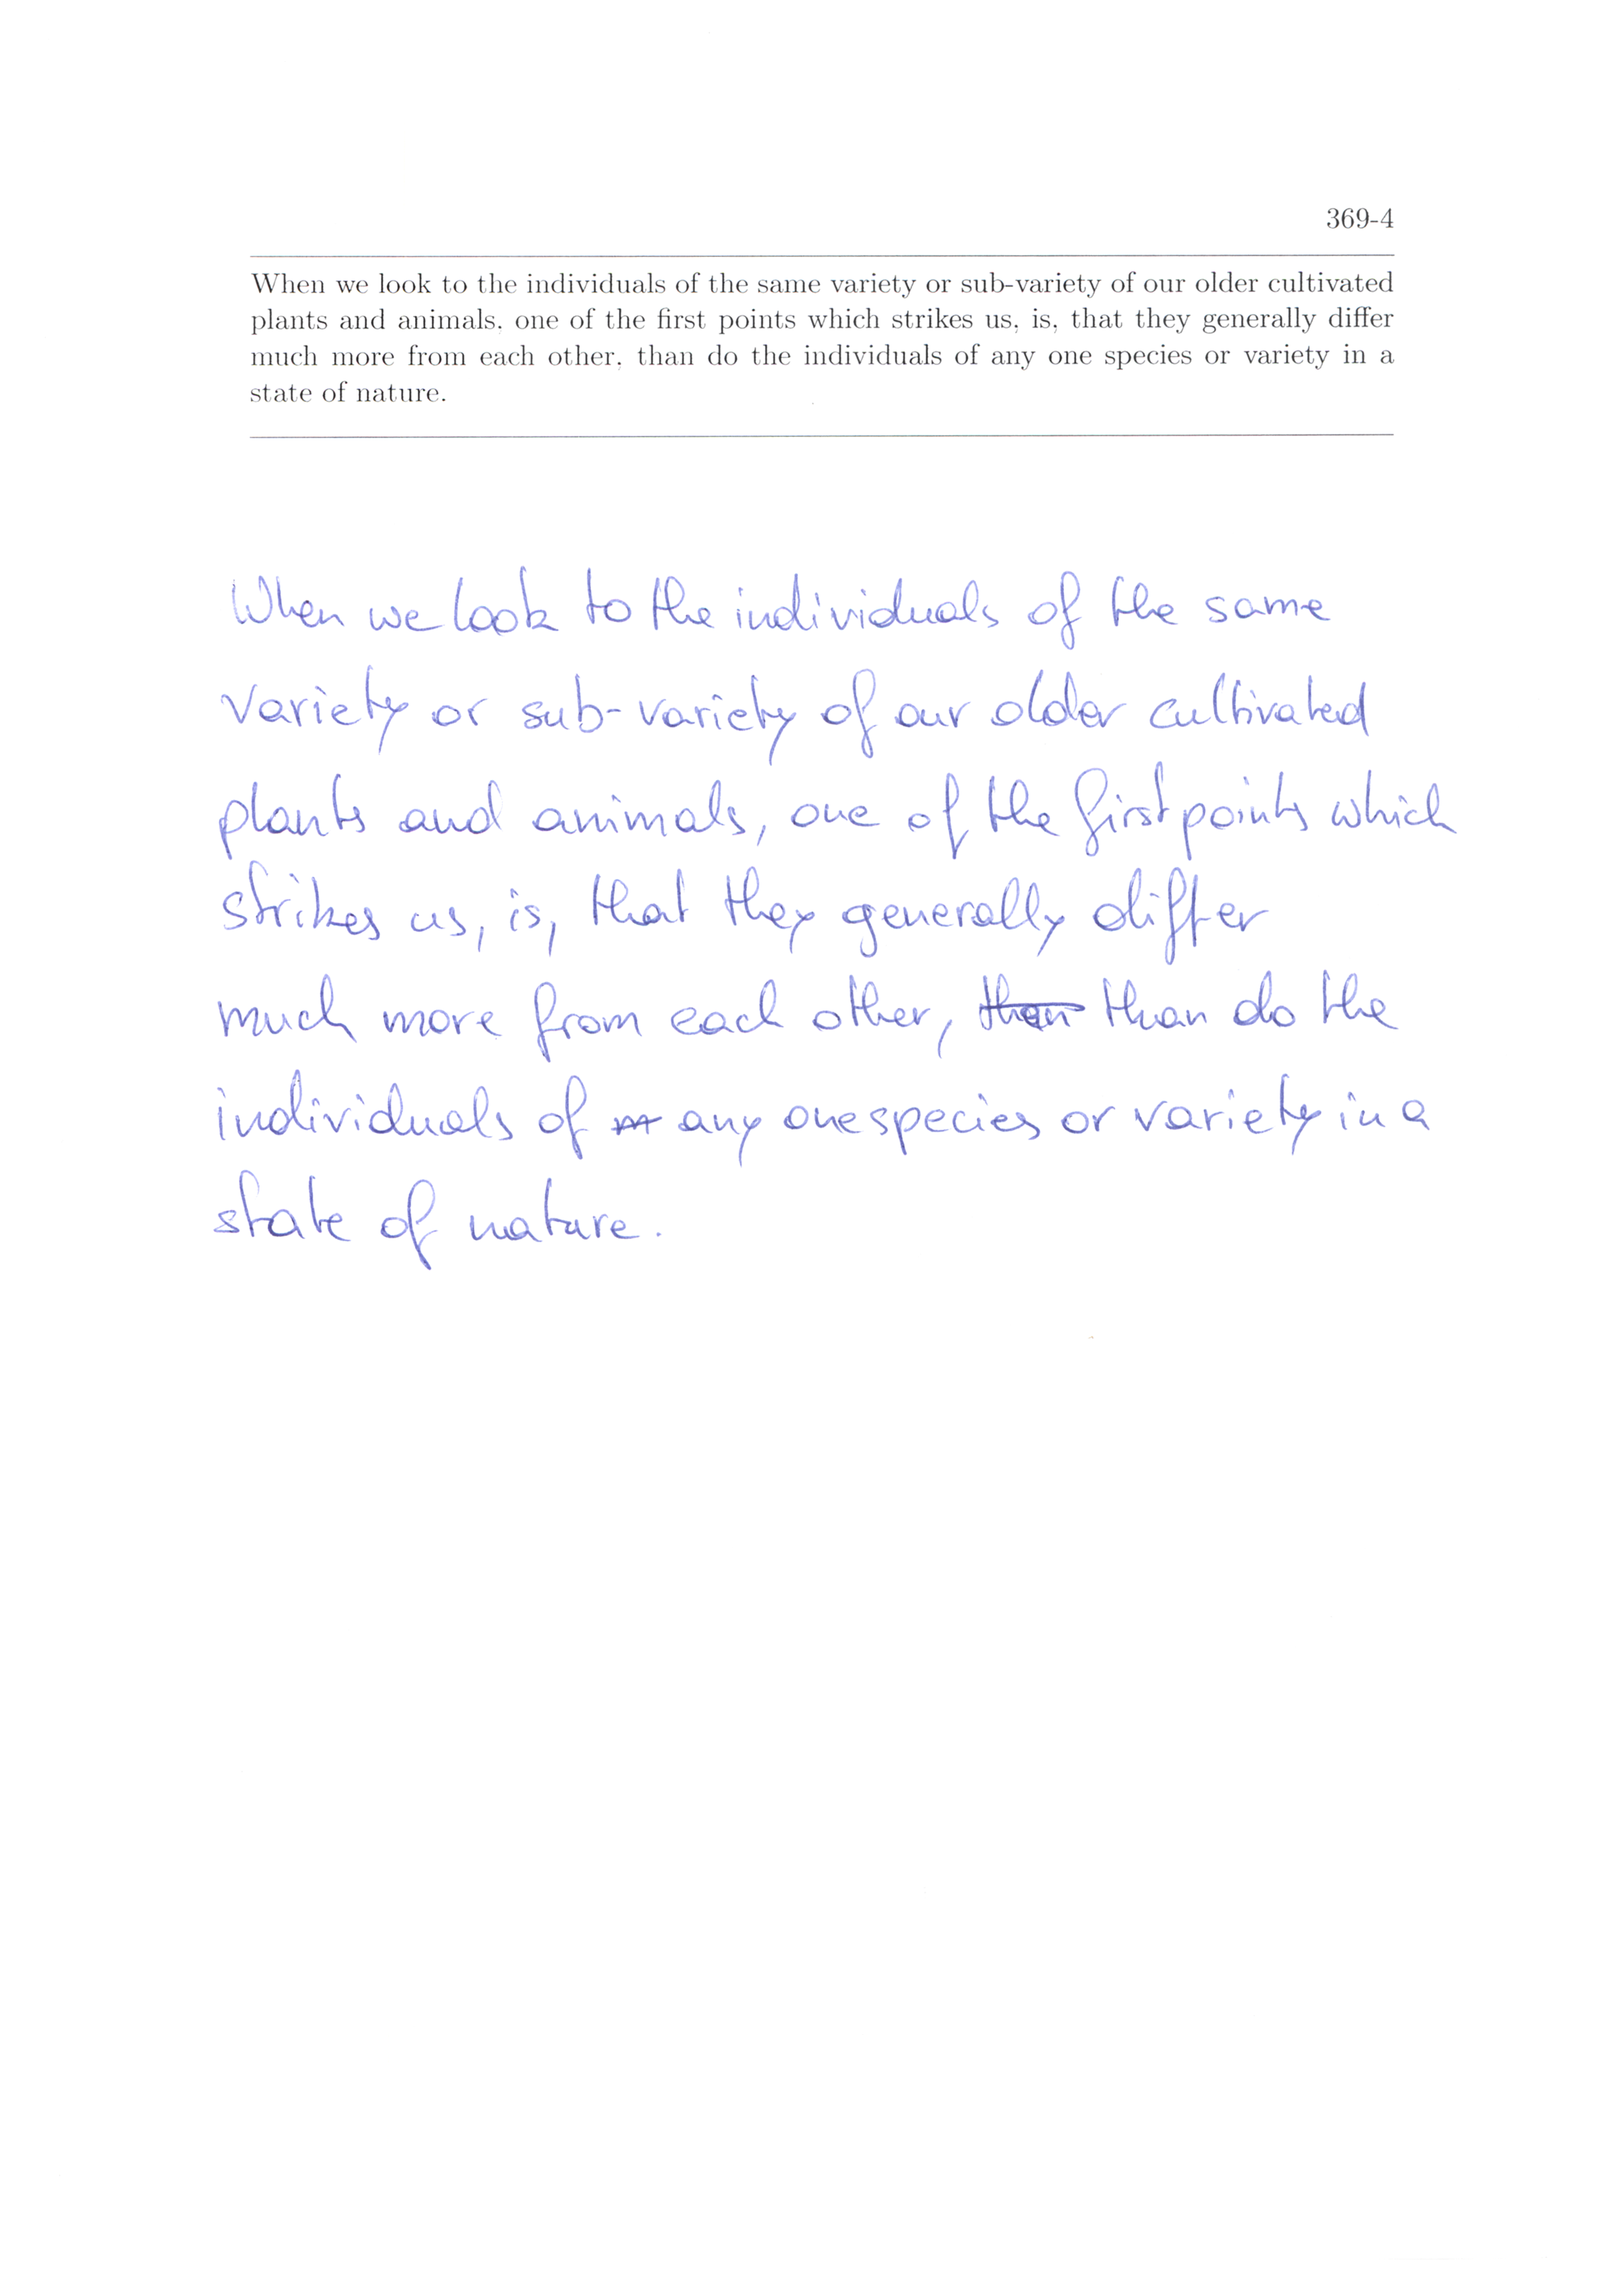 369-4
When we look to the individuals of the same variety or sub-variety of our older cultivated
plants and animals, one of the first points which strikes us, is, that they generally differ
much more from each other, than do the individuals of any one species or variety in a
state of nature.
When we look to the individuals of the same
variety or sub-variety of our older cultivated
plants and animals, one of the first points which
strikes us, is, that they generally differ
much more from each other, than do the
individuals of any one species or variety in a
state of nature.